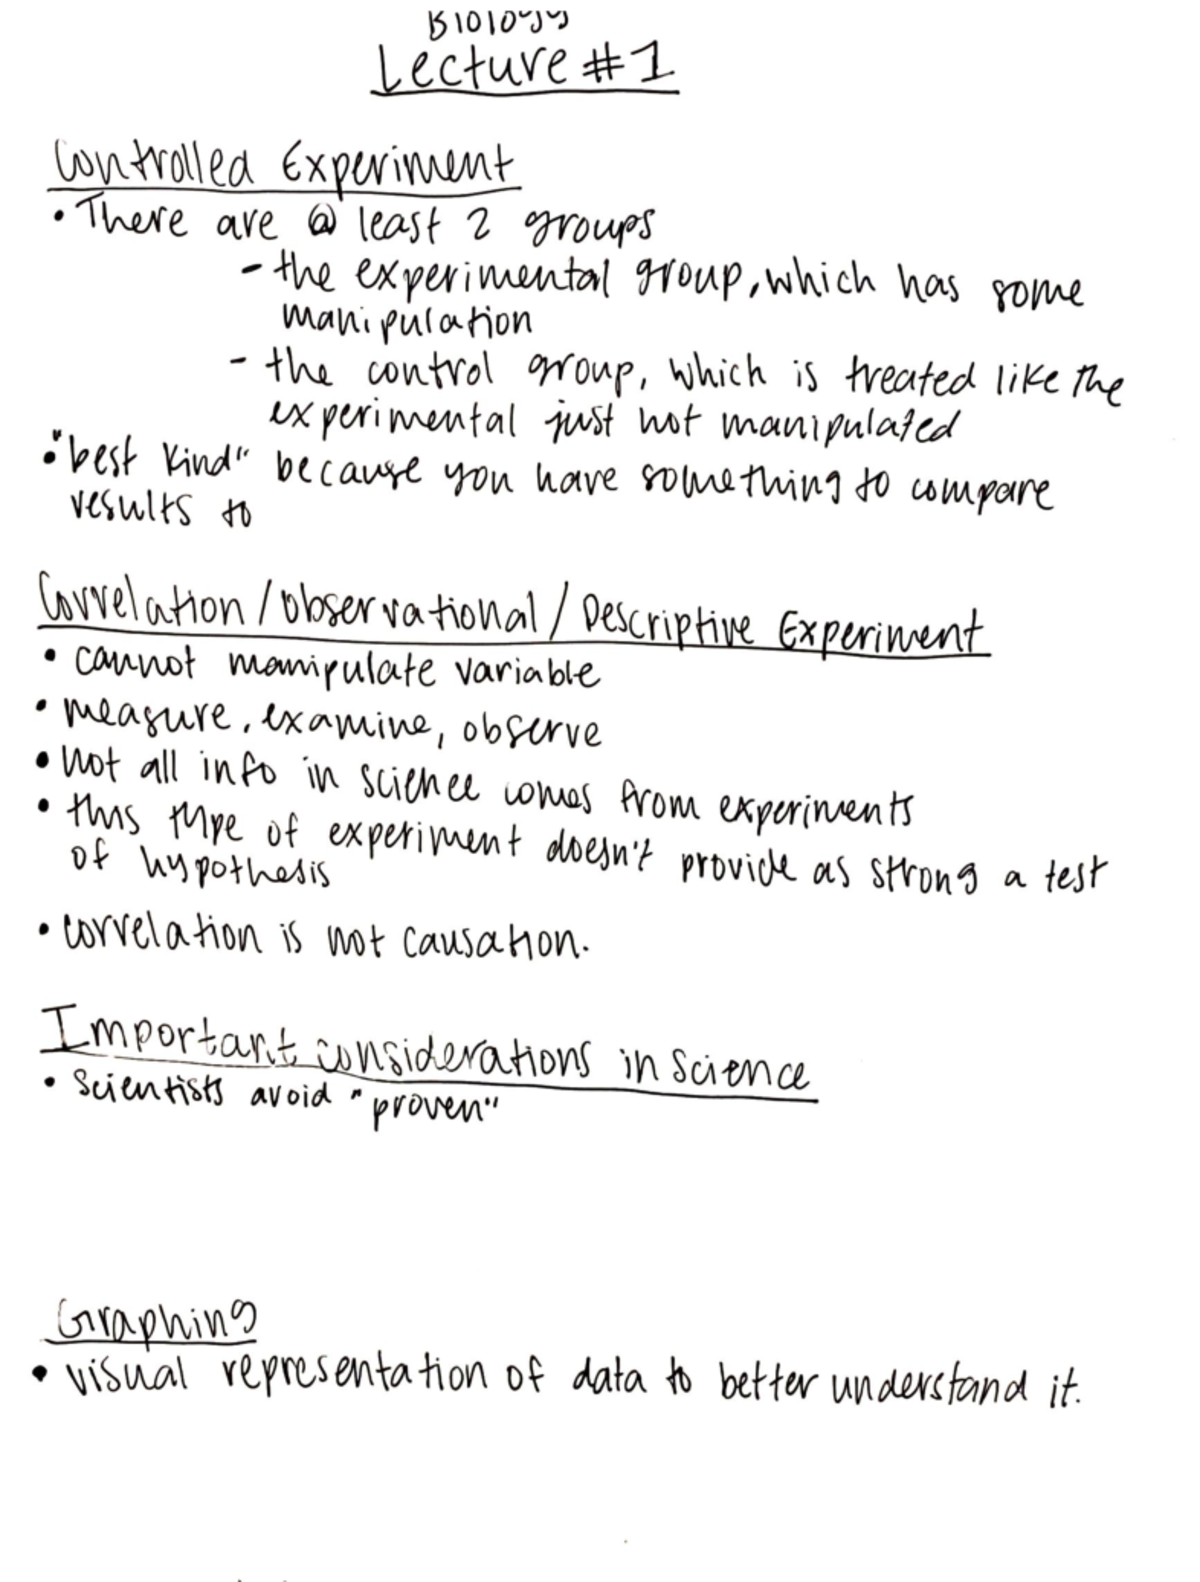 Biology
Lecture #1
Controlled Experiment
• There are @ least 2 groups
- the experimental group, which has some
manipulation
- the control group, which is treated like the
experimental just not manipulated
• "best kind" because you have something to compare
results to
Correlation / Observational / Descriptive Experiment
• cannot manipulate variable
• measure, examine, observe
• not all info in science comes from experiments
• this type of experiment doesn't provide as strong a test
of hypothesis
• correlation is not causation.
Important considerations in science
• Scientists avoid "proven"
Graphing
• visual representation of data to better understand it.